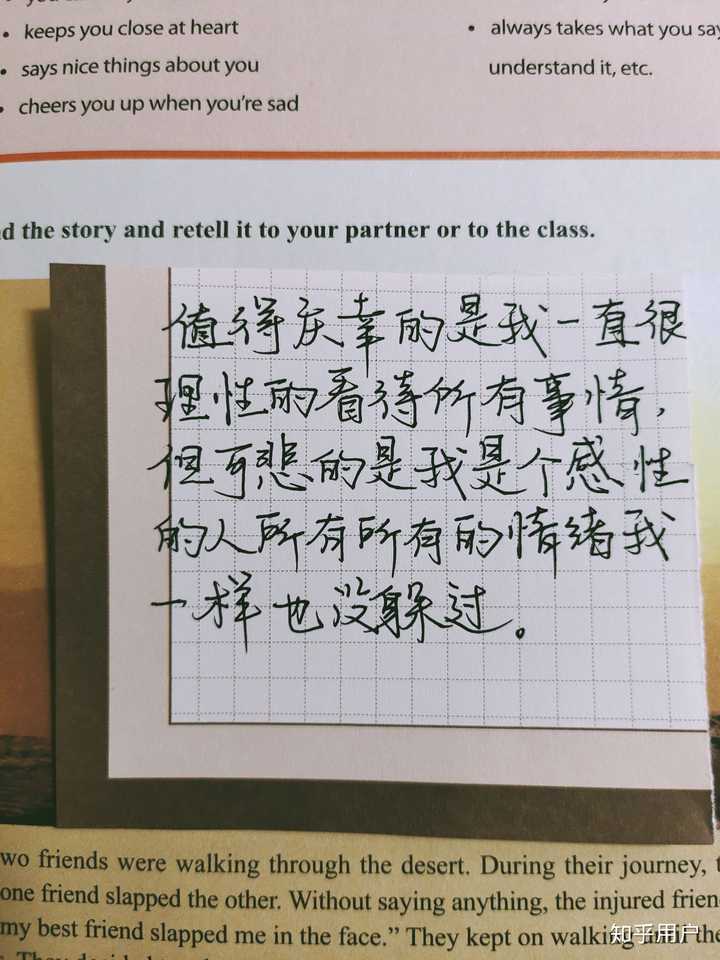 keeps you close at heart
says nice things about you
cheers you up when you're sad
always takes what you say
understand it, etc.
the story and retell it to your partner or to the class.
值得庆幸的是我一直很
理性的看待所有事情，
但可悲的是我是个感性
的人所有所有的情绪我
一样也没躲过。
wo friends were walking through the desert. During their journey,
one friend slapped the other. Without saying anything, the injured frien
my best friend slapped me in the face.” They kept on walking until the
知乎用户